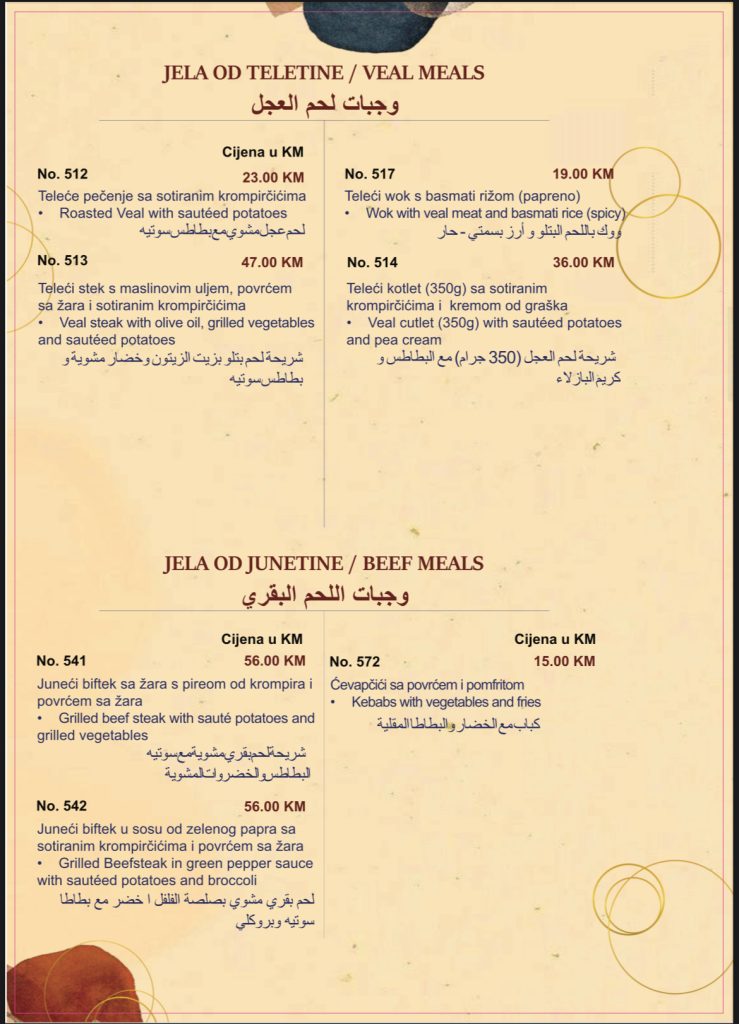 JELA OD TELETINE / VEAL MEALS
وجبات لحم العجل
Cijena u KM
No. 512 23.00 KM
Teleće pečenje sa sotiranim krompirčićima
• Roasted Veal with sautéed potatoes
لحم عجل مشوي مع بطاطس سوتيه
No. 513 47.00 KM
Teleći stek s maslinovim uljem, povrćem
sa žara i sotiranim krompirčićima
• Veal steak with olive oil, grilled vegetables
and sautéed potatoes
شريحة لحم بتلو بزيت الزيتون وخضار مشوية و
بطاطس سوتيه
No. 517 19.00 KM
Teleći wok s basmati rižom (papreno)
• Wok with veal meat and basmati rice (spicy)
ووك باللحم البتلو و أرز بسمتي - حار
No. 514 36.00 KM
Teleći kotlet (350g) sa sotiranim
krompirčićima i kremom od graška
• Veal cutlet (350g) with sautéed potatoes
and pea cream
شريحة لحم العجل (350 جرام) مع البطاطس و
كريم البازلاء
JELA OD JUNETINE / BEEF MEALS
وجبات اللحم البقري
Cijena u KM
No. 541 56.00 KM
Juneći biftek sa žara s pireom od krompira i
povrćem sa žara
• Grilled beef steak with sauté potatoes and
grilled vegetables
شريحة لحم بقري مشوية مع سوتيه
البطاطس والخضروات المشوية
No. 542 56.00 KM
Juneći biftek u sosu od zelenog papra sa
sotiranim krompirčićima i povrćem sa žara
• Grilled Beefsteak in green pepper sauce
with sautéed potatoes and broccoli
لحم بقري مشوي بصلصة الفلفل ا خضر مع بطاطا
سوتيه وبروكلي
Cijena u KM
No. 572 15.00 KM
Ćevapčići sa povrćem i pomfritom
• Kebabs with vegetables and fries
كباب مع الخضار و البطاطا المقلية